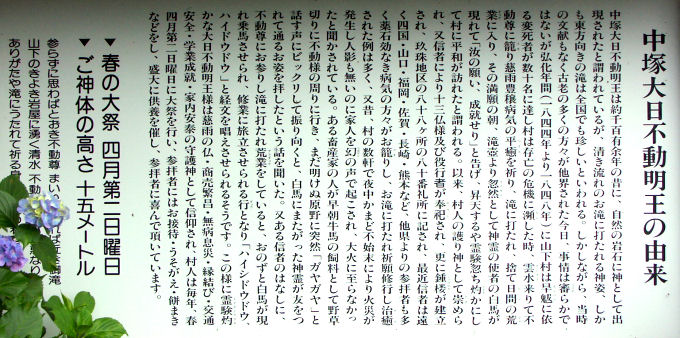 中塚大日不動明王の由来
中塚大日不動明王は約千百有余年の昔に、自然の岩石に神として出
現されたと謂われているが、清き流れのお滝に打たれる神姿、しか
も東方向きの滝は全国でも珍しいといわれる。しかしながら、当時
の文献もなく古老の多くの方々が他界された今日、事情は審らかで
はないが弘化年間(一八四四年より一八四八年)に山下村は旱魃に依
る変死者が数十名に達し村は存亡の危機に瀕した時、雲水来りて不
動尊に籠り慈雨豊穣病気の平癒を祈り、滝に打たれ、捨て日間の荒
業に入り、その満願の朝、滝壺より忽然として神霊の使者の白馬が
現れて「汝の願い、成就せり」と告げ、昇天するや霊験忽ち灼かにし
て村に平和が訪れたと謂われる。以来、村人の護り神として崇めら
れ、又信者により十三仏様及び役行者が奉祀され、更に鍾楼が建立
され、玖珠地区の八十八ヶ所の八十番札所に記され、最近信者は遠
く四国・山口・福岡・佐賀・長崎・熊本など、他県よりの参拝者も多
く薬石効なき病気の方々がお籠りし、お滝に打たれ祈願修行し治癒
された例は多く、又昔、村の数軒で夜中かまど不始末により火災が
発生し人影も無いのに家人を幻の声で起こされ、大火に至らなかっ
たと聞かされている。ある畜産家の方が早朝牛馬の飼料として野草
切りに不動様の周りに行き、まだ明けぬ原野に突然「ガヤガヤ」と
話す声にビックリして振り向くと、白馬にまたがった神霊が友をつ
れて通るお姿を拝したという話を聞いた。又ある信者のはなしに、
不動尊にお参りし滝に打たれ荒業をしていると、おのずと白馬が現
れ乗馬させられ、修業に旅立させられる行となり「ハイドウドウ、
ハイドウドウ」と経文を唱えさせられるそうです。この様に霊験灼
かな大日不動明王様は慈雨の仏・商売繁昌・無病息災・縁結び・交通
安全・学業成就・家内安泰の守護神として信仰され、村人は毎年、春
四月第二日曜日に大祭を行い、参拝者にはお接待・うそがえ・餅まき
などをし、盛大に供養を催し、参拝者に喜んで頂いています。
▼春の大祭 四月第二日曜日
▼ご神体の高さ 十五メートル
参らずに思わばとおき不動尊 まい
山下のきよき岩屋に湧く清水 不動
ありがたや滝にうたれて祈る身